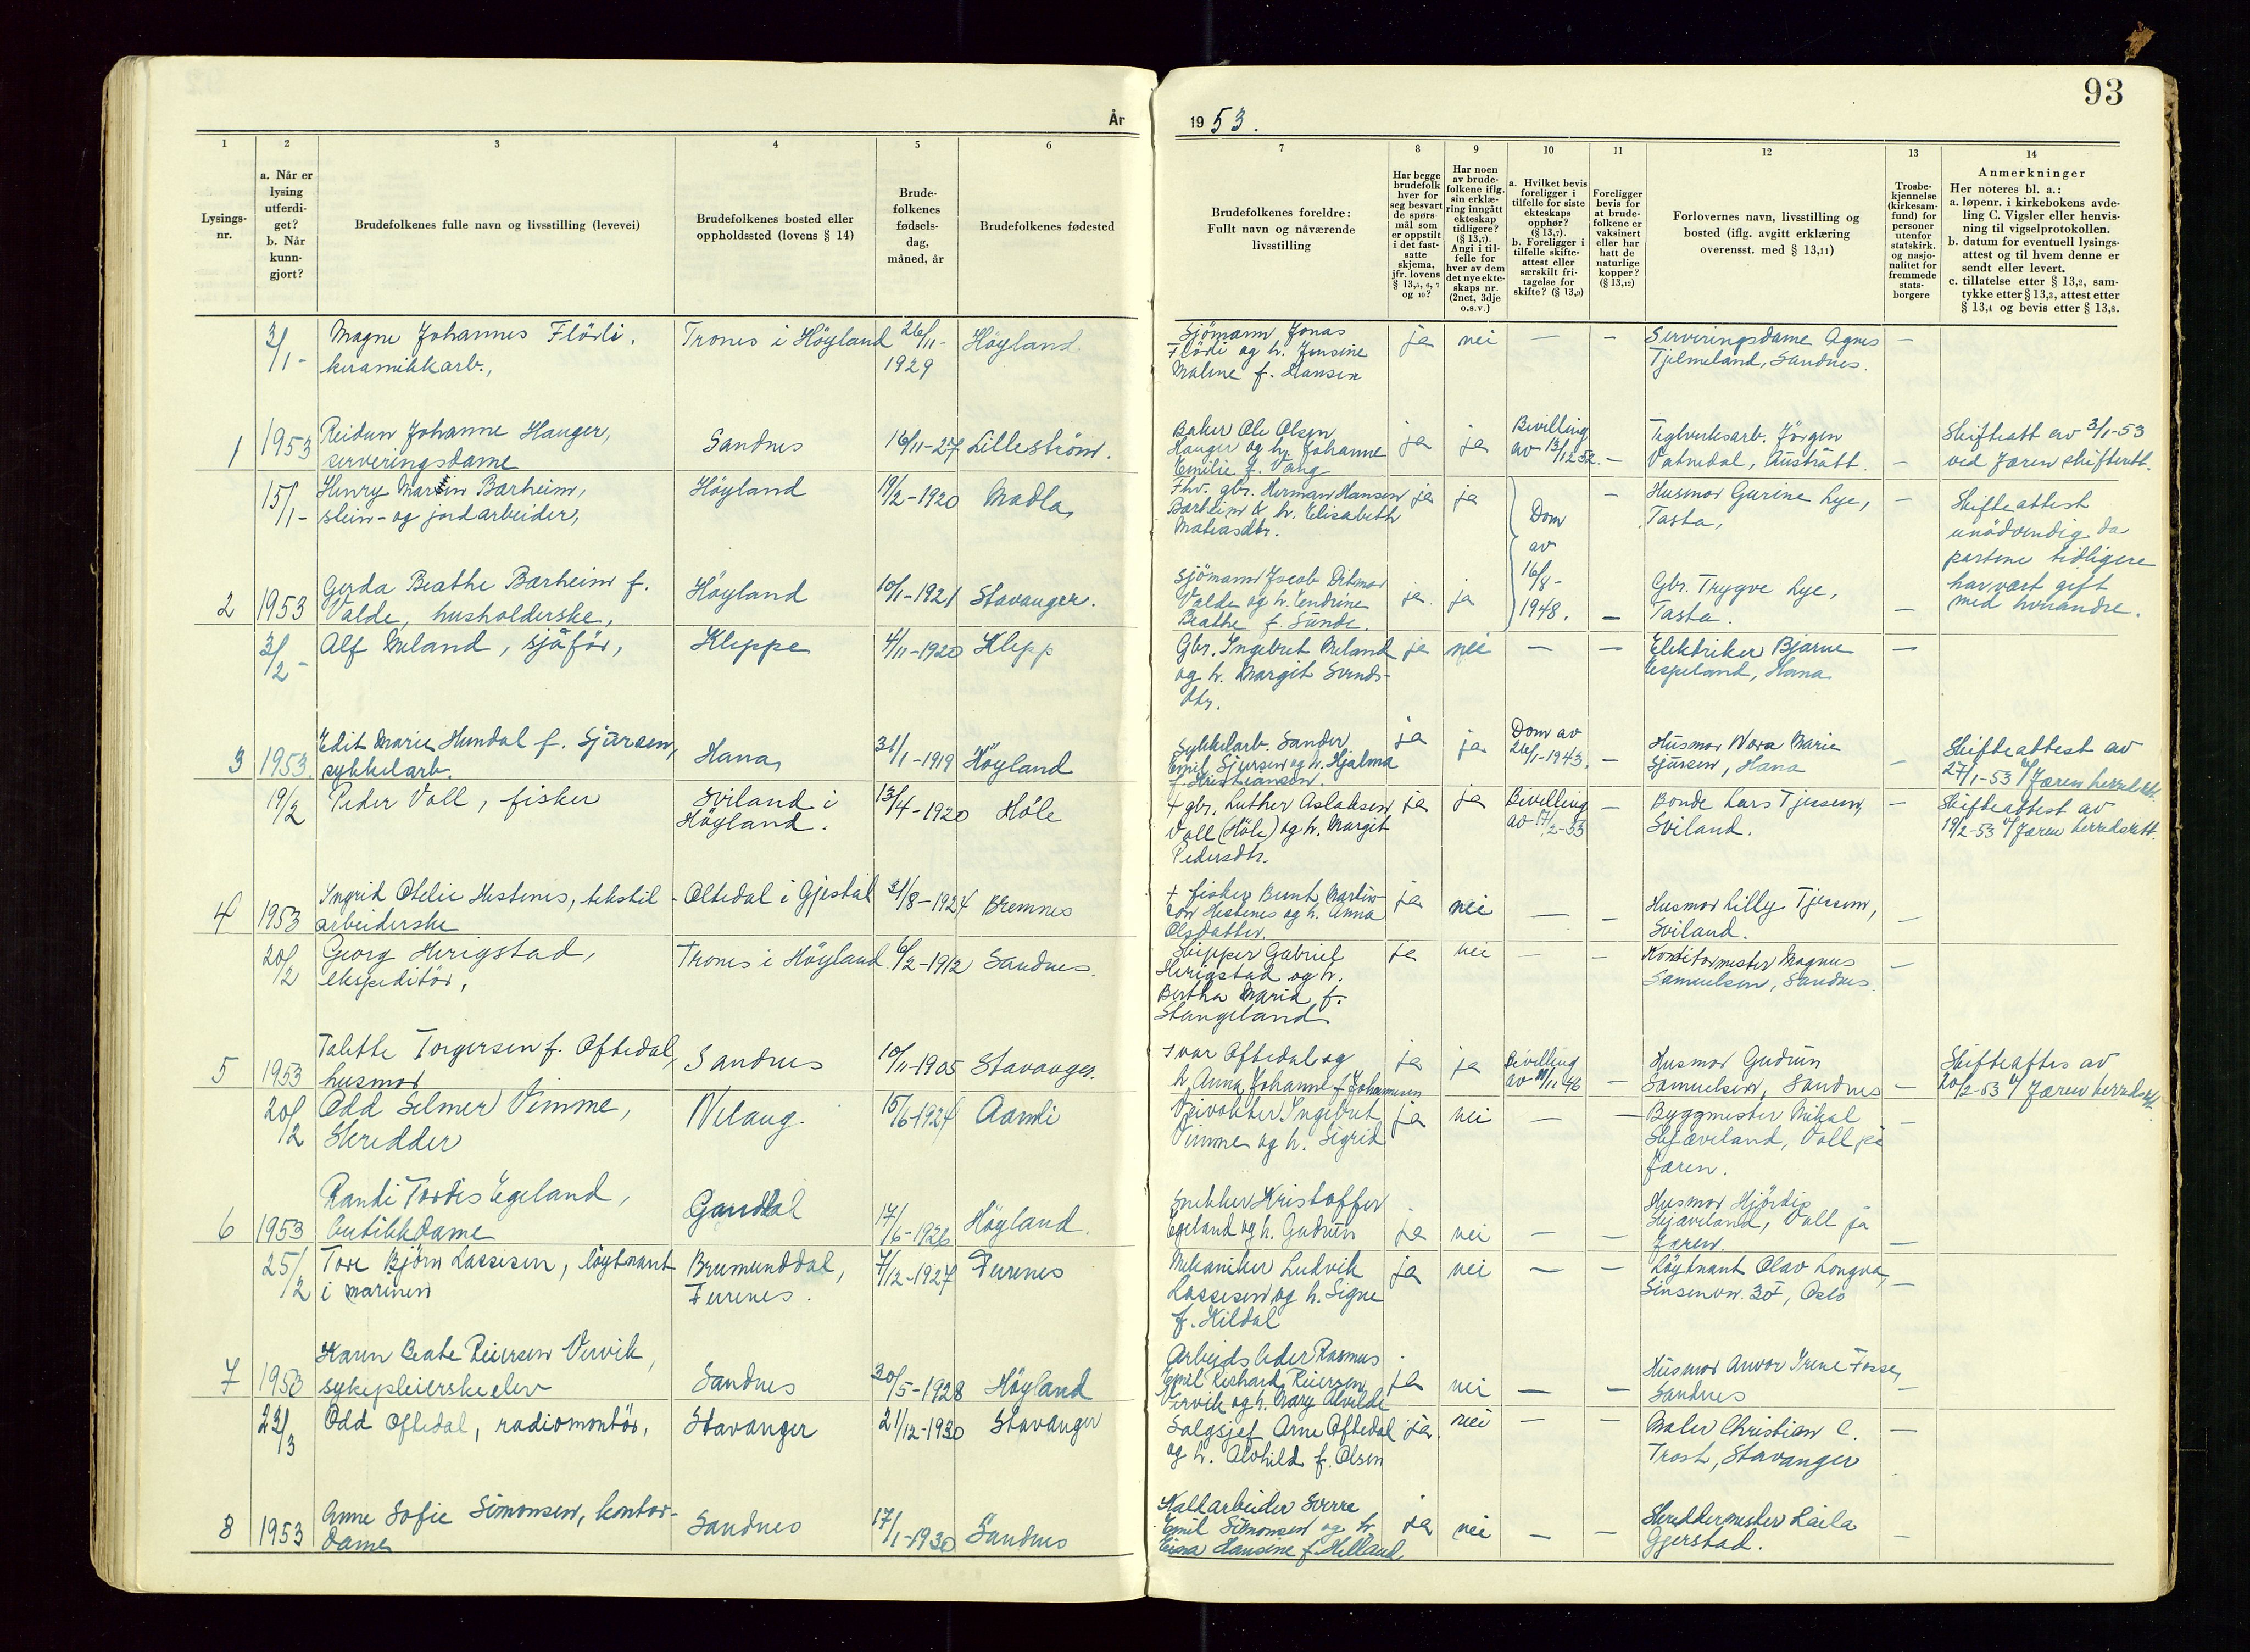 93
År
1953.
1
2
3
4
5
6
7
8
9
10
11
12
13
14
Lysings-
nr.
a. Når er
lysing
utferdi-
get?
b. Når
kunn-
gjort?
Brudefolkenes fulle navn og livsstilling (levevei)
Brudefolkenes bosted eller
oppholdssted (lovens § 14)
Brude-
folkenes
fødsels-
dag,
måned, år
Brudefolkenes fødested
Brudefolkenes foreldre:
Fullt navn og nåværende
livsstilling
Har begge
brudefolk
hver for
seg besvart
de spørs-
mål som
er oppstilt
i det fast-
satte
skjema,
jfr. lovens
§ 13,5, 6, 7
og 10?
Har noen
av brude-
folkene iflg.
sin erklæ-
ring inngått
ekteskap
tidligere?
(§ 13,7).
Angi i til-
felle for
hver av dem
det nye ekte-
skaps nr.
(2net, 3dje
o.s.v.)
a. Hvilket bevis
foreligger i
tilfelle for siste
ekteskaps
opphør?
(§ 13,7).
b. Foreligger i
tilfelle skifte-
attest eller
særskilt fri-
tagelse for
skifte? (§ 13,9)
Foreligger
bevis for
at brude-
folkene er
vaksinert
eller har
hatt de
naturlige
kopper?
(§ 13,12)
Forlovernes navn, livsstilling og
bosted (iflg. avgitt erklæring
overensst. med § 13,11)
Trosbe-
kjennelse
(kirkesam-
fund) for
personer
utenfor
statskirk.
og nasjo-
nalitet for
fremmede
stats-
borgere
Anmerkninger
Her noteres bl. a.:
a. løpenr. i kirkebokens avde-
ling C. Vigsler eller henvis-
ning til vigselprotokollen.
b. datum for eventuell lysings-
attest og til hvem denne er
sendt eller levert.
c. tillatelse etter § 13,2, sam-
tykke etter § 13,3, attest etter
§ 13,4 og bevis etter § 13,8.
3/1- Magne Johannes Flörli, Trones i Höyland 26/11- Höyland. Sjömann Jonas ja nei — — Serveringsdame Agnes —
keramikkarb., 1929 Flörli og h. Jensine Tjelmeland, Sandnes.
Maline f. Hansen
1 1953 Reidun Johanne Hauger, Sandnes 16/11-27 Lilleström. Baker Ole Olsen ja ja Bevilling Teglverksarb. Jörgen Skifteatt av 3/1-53
serveringsdame Hauger og h. Johanne av 13/12 52. — Vatnedal, Austrått. — ved Jæren skifterett.
Emilie f. Vang
15/1- Henry Martin Bærheim, Höyland 19/2-1920 Madla, Fhv. gbr. Herman Hansen ja ja — Husmor Gurine Lye, — Skifteattest
stein- og jordarbeider, Bærheim & h. Elisabeth Dom Tasta, unödvendig da
Mateasdtr. av partene tidligere
2 1953 Gerda Beathe Bærheim f. Höyland 10/1-1921 Stavanger. Sjömann Jacob Ditmar ja ja 16/8- Gbr. Trygve Lye, har vært gift
Valde, husholderske, Valde og h. Endrine 1948. — Tasta. — med hverandre.
Beathe f. Sunde.
3/2- Alf Meland, sjåför, Kleppe 4/11-1920 Klepp Gbr. Ingebret Meland ja nei — — Elektriker Bjarne —
og h. Margit Svends- Espeland, Hana
dtr.
3 1953. Edit Marie Hundal f. Sjursen, Hana, 31/1-1919 Höyland Sykkelarb. Sander ja ja Dom av Husmor Nora Marie Skifteattest av
sykkelarb. Emil Sjursen og h. Hjalma 26/1-1943, — Sjursen, Hana — 27/1-53 v/ Jæren herredsrett.
f. Kristiansen.
19/2 Peder Voll, fisker Sviland i 13/4-1920 Höle + gbr. Luther Aslaksen ja ja Bevilling — Bonde Lars Tjessem, — Skifteattest av
Höyland. Voll (Höle) og h. Margit av 17/2-53 Sviland. 19/2-53 v/ Jæren herredsrett.
Pedersdtr.
4 1953 Ingrid Otelie Hestenes, tekstil- Oltedal i Gjestal 31/8-1924 Bremnes + fisker Bernt Martin- ja nei — — Husmor Lilly Tjessem, —
arbeiderske son Hestenes og h. Anna Sviland.
Olsdatter.
20/2 Georg Herigstad, Trones i Höyland 6/2-1912 Sandnes. Skipper Gabriel ja nei — — Konditormester Magnus —
ekspeditör, Herigstad og h. Samuelsen, Sandnes.
Bertha Maria f.
Stangeland
5 1953 Talette Torgersen f. Oftedal, Sandnes 10/11-1905 Stavanger. Ivar Oftedal og ja ja Bevilling Husmor Gudrun Skifteattes av
husmor h. Anna Johanne f Johannesen av /11 46 — Samuelsen, Sandnes — 20/2-53 v/ Jæren herredsrett.
20/2 Odd Selmer Vimme, Nelaug. 15/6-1924 Aamli Ingebret ja nei — — Byggmester Mikal —
Skredder Vimme og h. Sigrid Skjæveland, Voll på
Jæren.
6 1953 Randi Tordis Egeland, Gandal 17/6-1926 Höyland. Snekker Kristoffer ja nei — — Husmor Hjördis —
butikkdame Egeland og h. Gudrun Skjæveland, Voll på
Jæren.
25/2 Tore Björn Lassesen, löytnant Brumunddal, 7/12-1927 Furenes Mekaniker Ludvik ja nei — — Löytnant Olav Longva, —
i marinen Furenes. Lassesen og h. Signe Sinsenvn. 30F, Oslo
f. Kildal
7 1953 Karen Beate Reiersen Vervik, Sandnes 30/5-1928 Höyland Arbeidsleder Rasmus ja nei — — Husmor Anvor Irene Fosse, —
sykepleierskeelev Emil Richard Reiersen Sandnes
Vervik og h. Mary Alvilde
23/3 Odd Oftedal, radiomontör, Stavanger 21/12-1930 Stavanger Salgsjef Arne Oftedal ja. nei — — Maler Christian C. —
og h. Alvhild f. Olsen Trost, Stavanger
8 1953 Anne Sofie Simonsen, kontor- Sandnes 17/1-1930 Sandnes Kallarbeider Sverre ja nei — — Skreddermester Laila —
dame Emil Simonsen og h. Gjerstad.
Hansine f. Helland